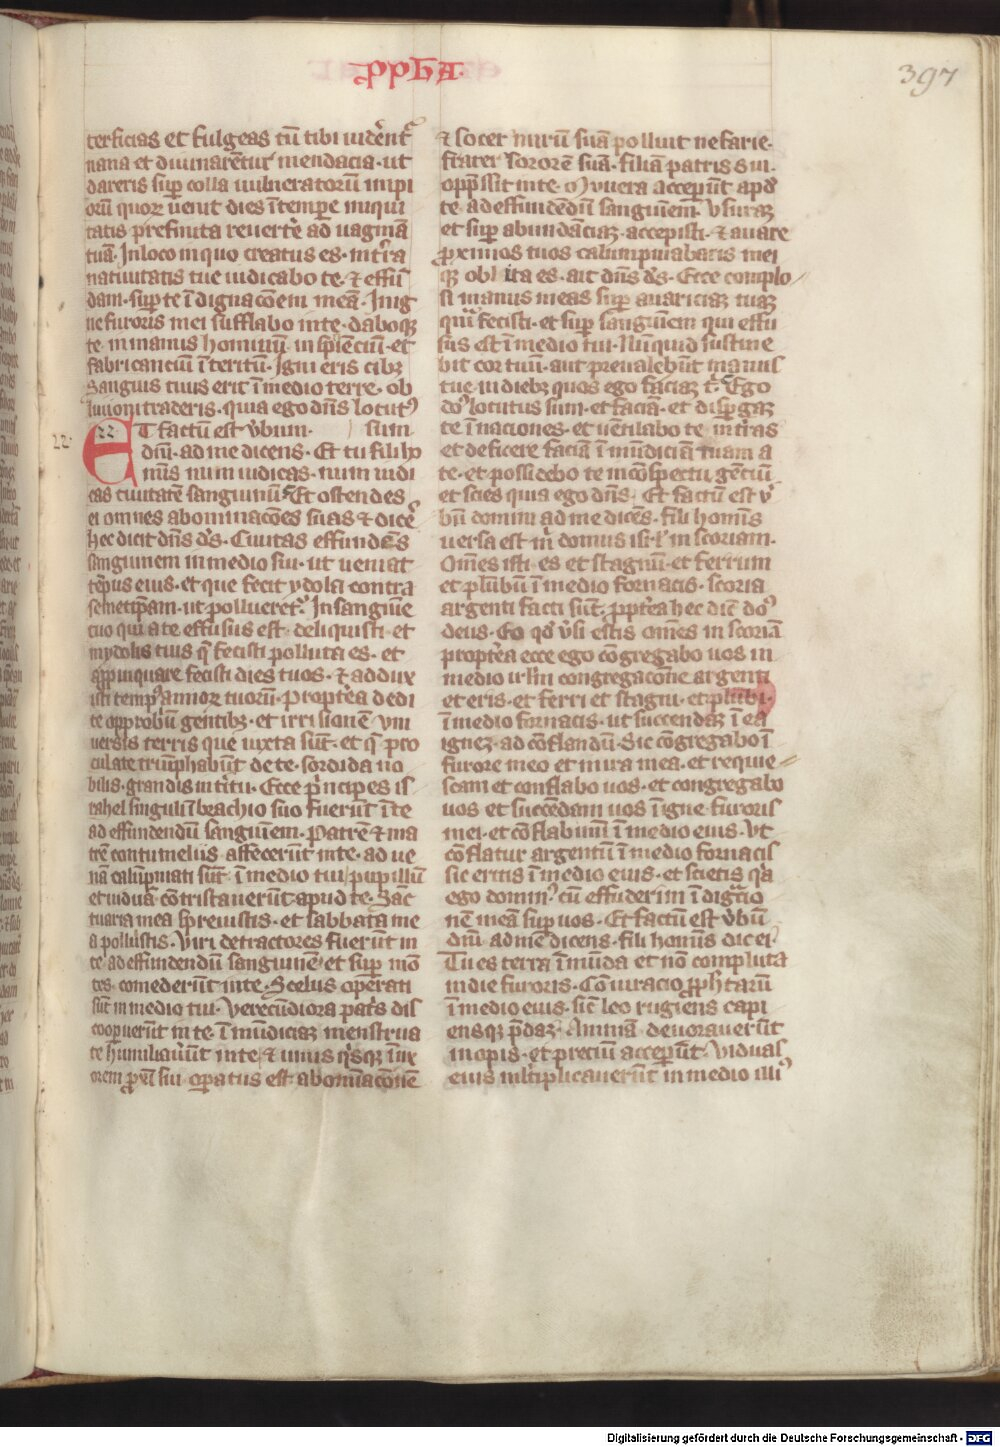 PPHA
397
terficias et fulgeas cū tibi uidērent᷑
uana et diuinarētur mendacia · ut
dareris sup colla uulneratorū impi
orū quoꝝ uenit dies ī tempe iniqui
tatis prefinita reuertēr ad uaginā
tuā · In loco in quo creatus es · in tr̄a
natiuitatis tue iudicabo te · ⁊ effū
dam · sup te ī dignacōem meā · In ig
ne furoris mei sufflabo in te · daboqꝫ
te in manus hominū insipiēciū · et
fabricanciū īteritū · Igni eris cibꝰ
sanguis tuus erit ī medio terre · ob
liuioni traderis · quia ego dn̄s locutꝰ
22· ET factū est v̄bum · sum
dn̄i · ad me dicens · Et tu fili ho
mīs num iudicas · num iudi
cas ciuitatē sanguinū · Et ostendes
ei omnes abominacōes suas ⁊ dicēˢ
hec dicit dn̄s dꝰs · Ciuitas effundēs
sanguinem in medio sui · ut ueniat
tēpus eius · et que fecit ydola contra
semetip̄am · ut pollueret᷑ · In sanguīe
tuo qui a te effusus est · deliquisti · et
in ydolis tuis q̄ fecisti polluta es · et
appinquare fecisti dies tuos · ⁊ addux
isti tempꝰ annoꝝ tuorū · Proptēa dedi
te opprobrū gentibꝫ · et irrisionē vni
uersis terris que iuxta sūt · et q̄ pro
cul a te triūphabūt de te · sordida no
bilis · grandis interitu · Ecce pͥncipes is
rahel singuli ī brachio suo fuerūt ī te
ad effundendū sanguinem · Patrē ⁊ ma
trē contumeliis affecerūt in te · ad ue
nā calūpniati sūt ī medio tui · pupillū
et uiduā cōtristauerūt apud te · Sāc
tuaria mea spreuistis · et sabbata me
a polluistis · Viri detractores fuerūt in
te ad effundendū sanguinē · et sup mō
tes comederūt in te · Scelus operati
sūt in medio tui · Verecūdiora patͥs dis
cooperuerūt in te · ī mūdiciaꝫ menstrua
te humiliauerūt in te · ⁊ unusqͥsqꝫ ī ux
orem ꝓximi sui opatus est abominacōnem
⁊ socer nurū suā polluit nefarie ·
frater sororē suā · filiā patris sui ·
opp̄ssit in te · Munera accepūt apd̄
te · ad effundēdū sanguinem · Vsuraꝫ
et sup abundāciaꝫ · accepisti · ⁊ auare
ꝓximos tuos calumpniabaris mei
qꝫ oblita es · ait dn̄s dꝰs · Ecce complo
si manus meas sup auariciaꝫ tuaꝫ
quā fecisti · et sup sanguinem qui effu
sus est ī medio tui · Nūquid sustine
bit cor tuū · aut preualebūt manus
tue · in diebꝫ quos ego faciaꝫ tͥ · Ego
doꝰ locutus sum · et faciā · et dispgaꝫ
te ī naciones · et uētilabo te in tr̄as
et deficere faciā ī mūdiciā tuam a
te · et possidebo te in cōspectu gēciū
et scies quia ego dn̄s · Et factū est v̄
bū domini ad me dicēs · fili homīs
uersa est m̄ domus isr̄l in scoriam ·
Om̄es isti · es et stagnū · et ferrum
et plūbū ī medio fornacis · scoria
argenti facti sūt · ꝓptēa hec dic̄ doꝰ
deus · Eo qd̄ v̄si estis om̄es in scoriā
proptēa ecce ego cōgregabo uos in
medio irl̄m congregacōne argenti
et eris · et ferri et stagni · et plūbi ·
ī medio fornacis · ut succendaꝫ ī ea
igneꝫ · ad cōflandū · Sic cōgregabo ī
furore meo et in ira mea · et requie
scam et conflabo uos · et congregabo
uos et succēdam uos ī igne furoris
mei · et cōflabimī ī medio eius · Vt
cōflatur argentū ī medio fornacis
sic eritis ī medio eius · et scietis qͣa
ego dominꝰ cū effuderim ī digͣtio
nē meā sup uos · Et factū est v̄bū
dn̄i ad me dicens · fili homīs dic ei ·
Tu es terra ī mūda et nō compluta
in die furoris · Cōiuracio ꝓphtarū
ī medio eius · sic̄ leo rugiens capi
ensqꝫ p̄daꝫ · Animā deuorauerūt
in opis · et preciū accepūt · Viduas
eius ml̄tiplicauerūt in medio illiꝰ
Digitalisierung gefördert durch die Deutsche Forschungsgemeinschaft - DFG